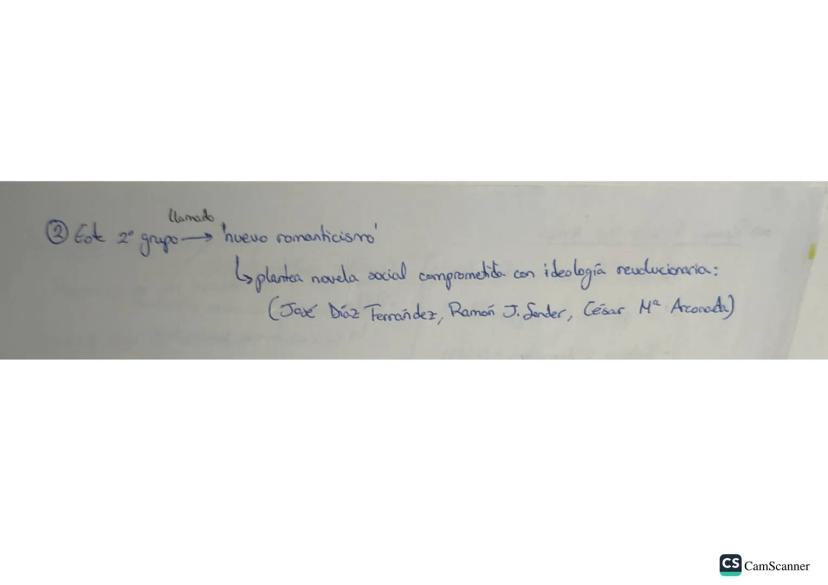 llamado
② Este 2º grupo → 'nuevo romanticismo'
↳ plantea novela social comprometida con ideología revolucionaria:
(José Díaz Fernández, Ramón J. Sender, César Mª Arconada)
CS CamScanner